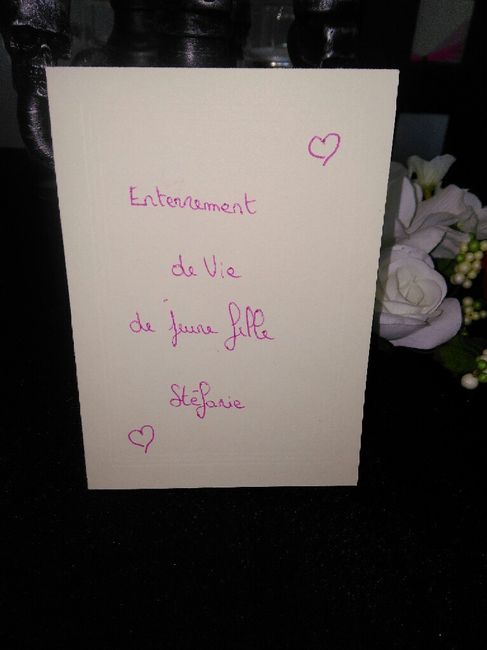 Enterrement
de Vie
de jeune fille
Stéfanie